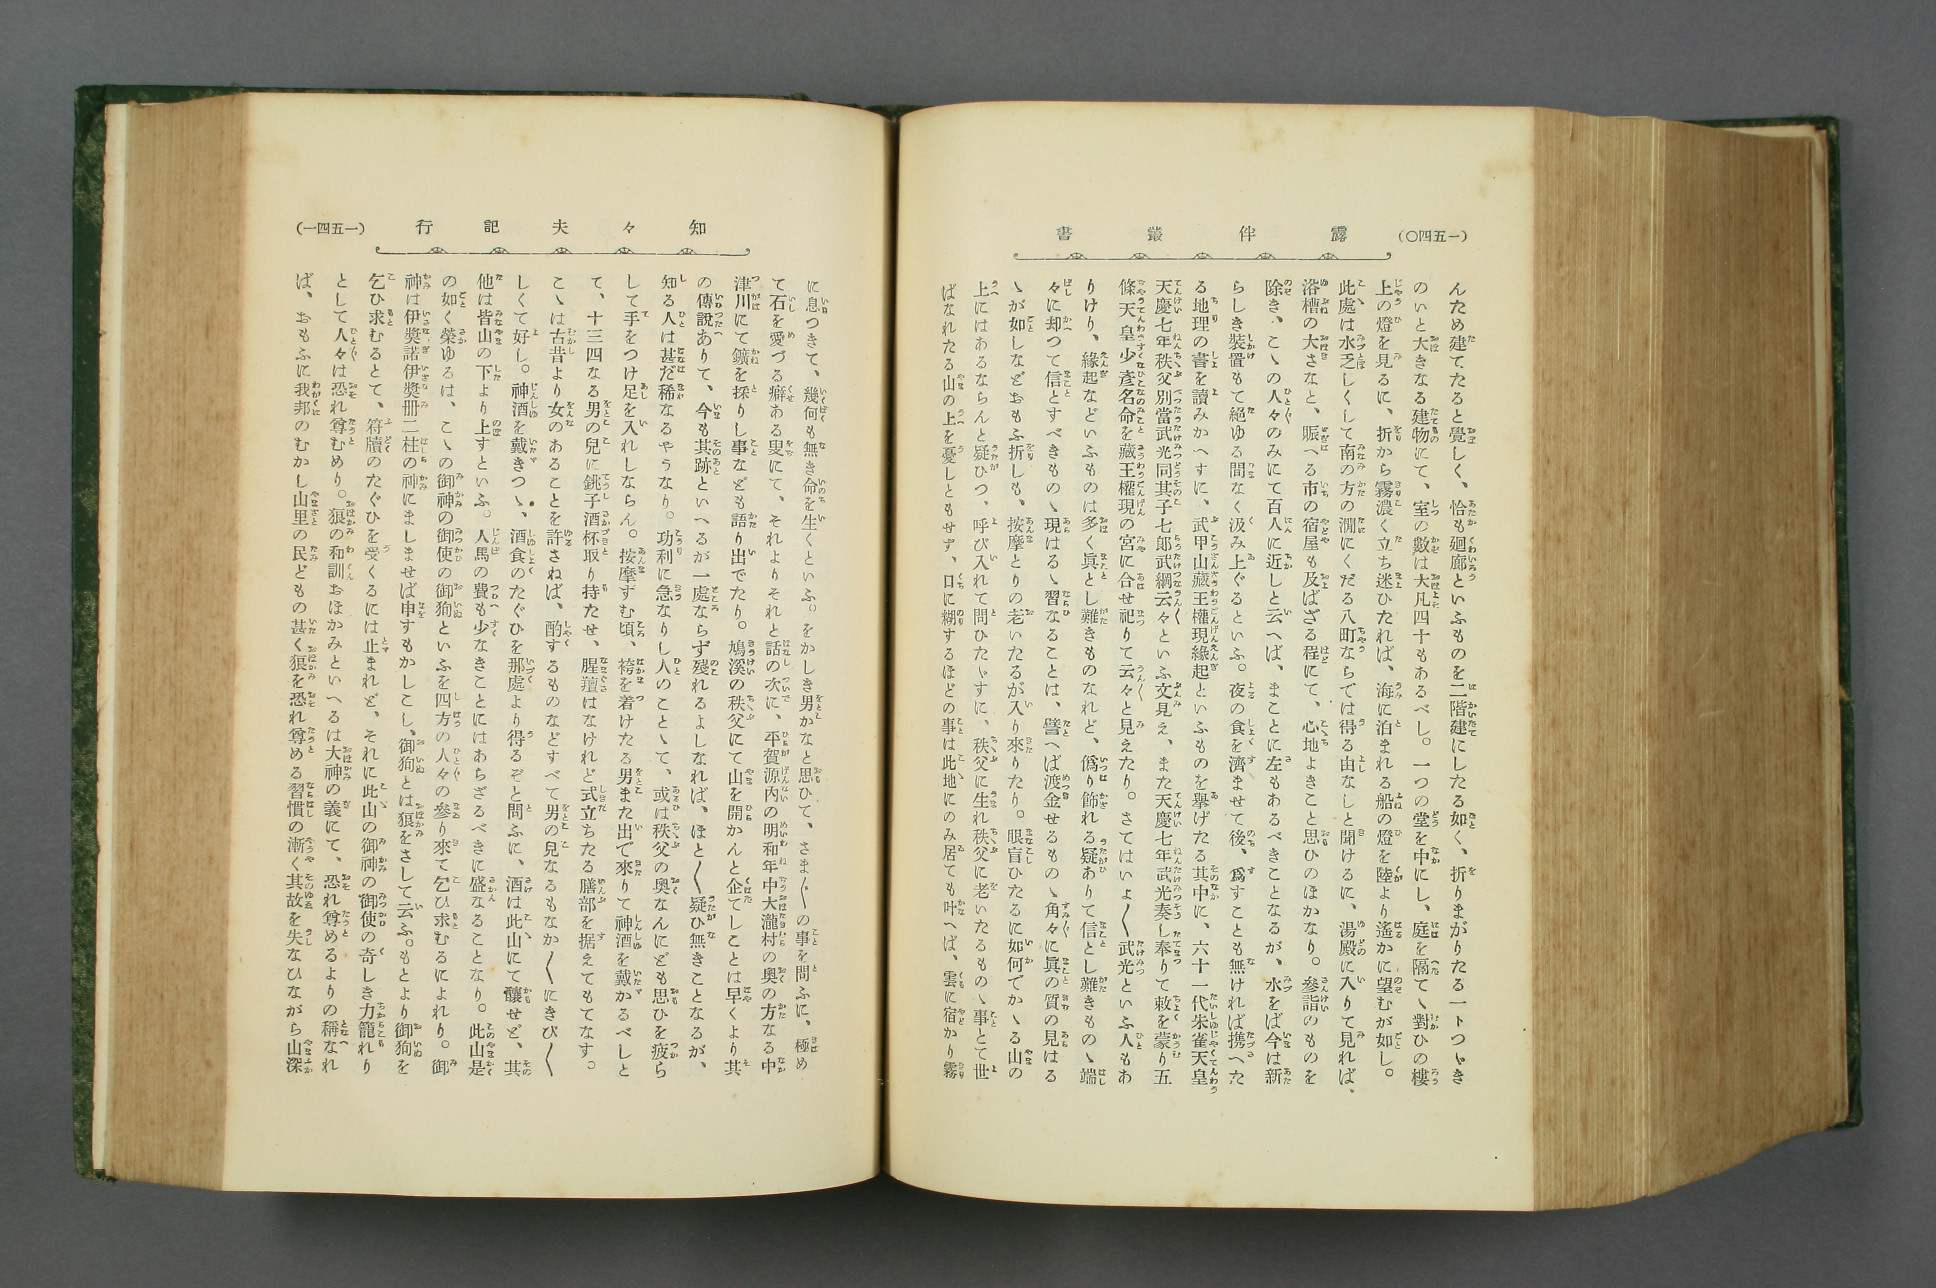 露伴叢書
(一五四〇)
んため建てたると覺しく、恰も廻廊といふものを二階建にしたる如く、折りまがりたる一トつゞき
のいと大きなる建物にて、室の數は大凡四十もあるべし。一つの堂を中にし、庭を隔てゝ對ひの樓
上の燈を見るに、折から霧濃く立ち迷ひたれば、海に泊まれる船の燈を陸より遙かに望むが如し。
此處は水乏しくして南の方の澗にくだる八町ならでは得る由なしと聞けるに、湯殿に入りて見れば、
浴槽の大さなと、賑へる市の宿屋も及ばざる程にて、心地よきこと思ひのほかなり。參詣のものを
除き、こゝの人々のみにて百人に近しと云へば、まことに左もあるべきことなるが、水をば今は新
らしき裝置もて絕ゆる間なく汲み上ぐるといふ。夜の食を濟ませて後、爲すことも無ければ携へた
る地理の書を讀みかへすに、武甲山藏王權現緣起といふものを擧げたる其中に、六十一代朱雀天皇
天慶七年秩父別當武光同其子七郎武綱云々といふ文見え、また天慶七年武光奏し奉りて敕を蒙り五
條天皇少彥名命を藏王權現の宮に合せ祀りて云々と見えたり。さてはいよ〱武光といふ人もあ
りけり、緣起などいふものは多く眞とし難きものなれど、僞り飾れる疑ありて信とし難きものゝ端
々に却つて信とすべきものゝ現はるゝ習なることは、譬へば渡金せるものゝ角々に眞の質の見はる
ゝが如しなどおもふ折しも、按摩とりの老いたるが入り來りたり。眼盲ひたるに如何でかゝる山の
上にはあるならんと疑ひつ、呼び入れて問ひたゞすに、秩父に生れ秩父に老いたるものゝ事とて世
ばなれたる山の上を憂しともせず、口に糊するほどの事は此地にのみ居ても叶へば、雲に宿かり霧
知々夫記行
(一五四一)
に息つきて、幾何も無き命を生くといふ。をかしき男かなと思ひて、さま〲の事を問ふに、極め
て石を愛づる癖ある叟にて、それよりそれと話の次に、平賀源内の明和年中大瀧村の奧の方なる中
津川にて鑛を採りし事なども語り出でたり。鳩溪の秩父にて山を開かんと企てしことは早くより其
の傳說ありて、今も其跡といへるが一處ならず殘れるよしなれば、ほと〱疑ひ無きことなるが、
知る人は甚だ稀なるやうなり。功利に急なりし人のことゝて、或は秩父の奧なんにども思ひを疲ら
して手をつけ足を入れしならん。按摩すむ頃、袴を着けたる男また出で來りて神酒を戴かるべしと
て、十三四なる男の兒に銚子酒杯取り持たせ、腥羶はなけれど式立ちたる膳部を据えてもてなす。
こゝは古昔より女のあることを許さねば、酌するものなどすべて男の兒なるもなか〱にきび〱
しくて好し。神酒を戴きつゝ、酒食のたぐひを那處より得るぞと問ふに、酒は此山にて釀せど、其
他は皆山の下より上すといふ。人馬の費も少なきことにはあらざるべきに盛なることなり。此山是
の如く榮ゆるは、こゝの御神の御使の御狗といふを四方の人々の參り來て乞ひ求むるによれり。御
神は伊奘諾伊奘冊二柱の神にましませば申すもかしこし、御狗とは狼をさして云ふ。もとより御狗を
乞ひ求むるとて、符牘のたぐひを受くるには止まれど、それに此山の御神の御使の奇しき力籠れり
として人々は恐れ尊むめり。狼の和訓おほかみといへるは大神の義にて、恐れ尊めるよりの稱なれ
ば、おもふに我邦のむかし山里の民どもの甚く狼を恐れ尊める習慣の漸く其故を失なひながら山深